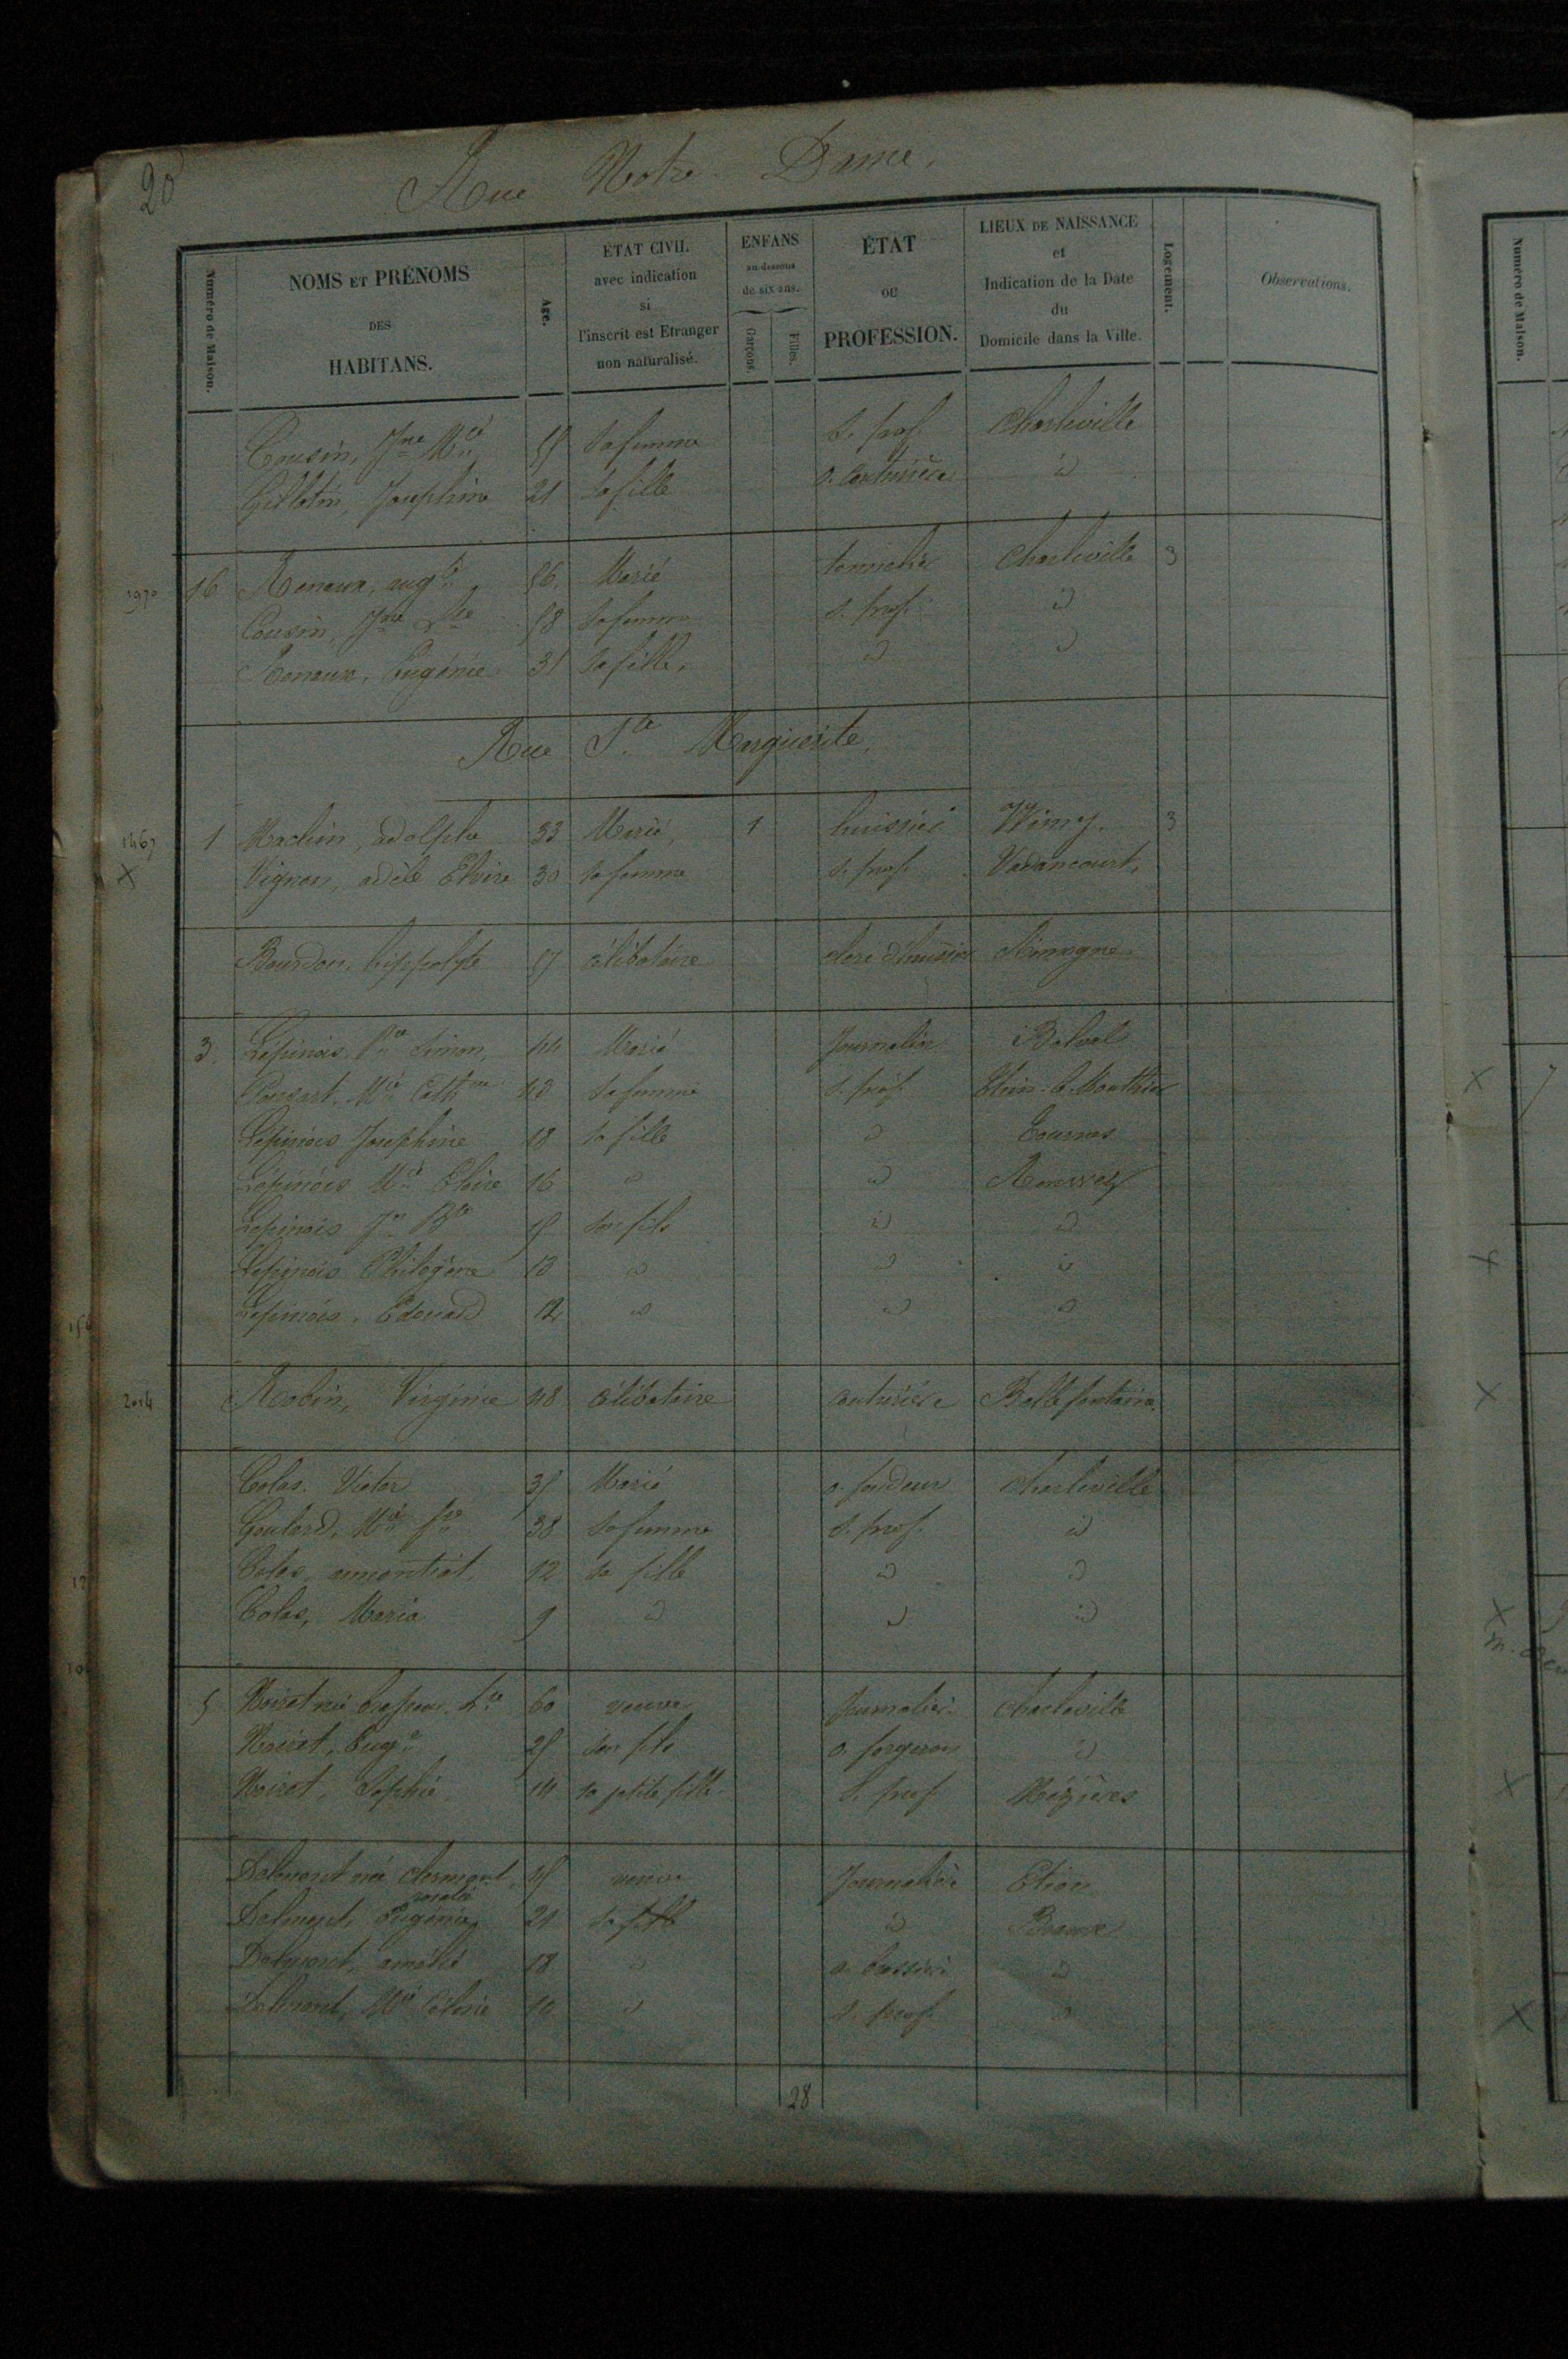 20
Rue Notre Dame.
Numéro de Maison. NOMS ET PRÉNOMS DES HABITANS. Age. ÉTAT CIVIL avec indication si l'inscrit est Etranger non naturalisé. ENFANS au-dessous de six ans. Garçons. Filles. ÉTAT OU PROFESSION. LIEUX DE NAISSANCE et Indication de la Date du Domicile dans la Ville. Logement. Observations.
Cousin, Jne Mie 55 sa femme s. prof. Charleville
Gillotin, Josephine 21 sa fille o. couturière id
1970 16 Renaux, augte 56 Marié tonnelier Charleville 3
Cousin, Jne 58 sa femme s. prof. id
Renaux, Eugénie 31 sa fille, id id
Rue Ste Marguerite.
1467 1 Machin, adolphe 33 Marié, 1 huissier Wimy. 3
X Vignon, adèle Elvire 30 sa femme s. prof. Vadancourt,
Bourdon, hippolyte 57 célibataire clerc d'huissier Rimogne
3. Lépinois, Simon, 44 Marié Journalier Belval
Ponsart, Mie Cathne 43 sa femme s. prof.
Lépinois Josephine 18 sa fille id Tournes
Lépinois Mie 16 id id
Lépinois Jn Bte 15 son fils id id
Lépinois Philogène 13 id id id
Lépinois, Edouard 12 id id id
2014 Robin, Virginie 48 célibataire couturière Bellefontaine.
Colas, Victor 35 Marié o. fondeur Charleville
Goulard, Mie 38 sa femme s. prof. id
Colas, 12 sa fille id id
Colas, Maria 9 id id id
5 Noiret née 60 veuve Journalière Charleville
Noiret, Eugne 25 son fils o. forgeron id
Noiret, Sophie 14 sa petite fille. s. prof. Mézières
Delmont née Clermont, 45 veuve Journalière Etion
rosalie
Delmont, Eugénie 21 sa fille id
Delmont, amélie 18 id id
Delmont, Mie 10 id s. prof. id
28
Numéro de Maison.